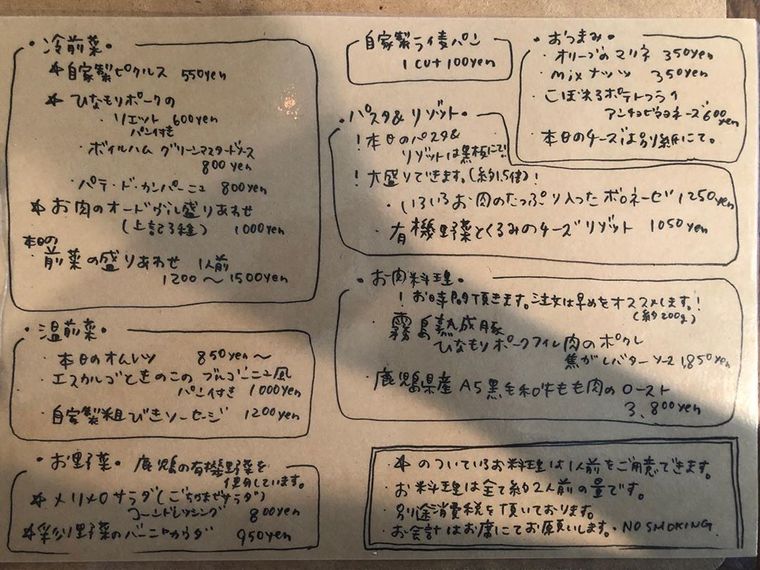 ・冷前菜・
☆自家製ピクルス 550yen
☆ひなもりポークの
・リエット 600yen
パン付き
・ボイルハム グリーンマスタードソース
800yen
・パテ・ド・カンパーニュ 800yen
☆お肉のオードヴル盛りあわせ
(上記3種) 1000yen
本日の
・前菜の盛りあわせ 1人前
1200〜1500yen
・温前菜・
・本日のオムレツ 850yen〜
・エスカルゴときのこの ブルゴーニュ風
パン付き 1000yen
・自家製粗びきソーセージ 1200yen
・お野菜・ 鹿児島の有機野菜を
使用しています。
☆メリメロサラダ(ごちゃまぜサラダ)
コーンドレッシング 800yen
☆彩り野菜のバーニャカウダ 950yen
自家製ライ麦パン
1cut 100yen
・おつまみ・
・オリーブのマリネ 350yen
・mixナッツ 350yen
・こぼれるポテトフライ
アンチョビマヨネーズ 600yen
・本日のチーズは別紙にて。
・パスタ&リゾット・
!本日のパスタ&
リゾットは黒板にて!
!大盛りできます。(約1.5倍)!
・いろいろお肉のたっぷり入ったボロネーゼ 1250yen
・有機野菜とくるみのチーズリゾット 1050yen
・お肉料理・
!お時間頂きます。注文は早めをオススメします。!
(約200g)
・霧島熟成豚
ひなもりポークフィレ肉のポワレ
焦がしバターソース 1,850yen
・鹿児島県産A5黒毛和牛もも肉のロースト
3,800yen
・☆のついているお料理は1人前をご用意できます。
・お料理は全て約2人前の量です。
・別途消費税を頂いております。
・お会計はお席にてお願いします。・NO SMOKING